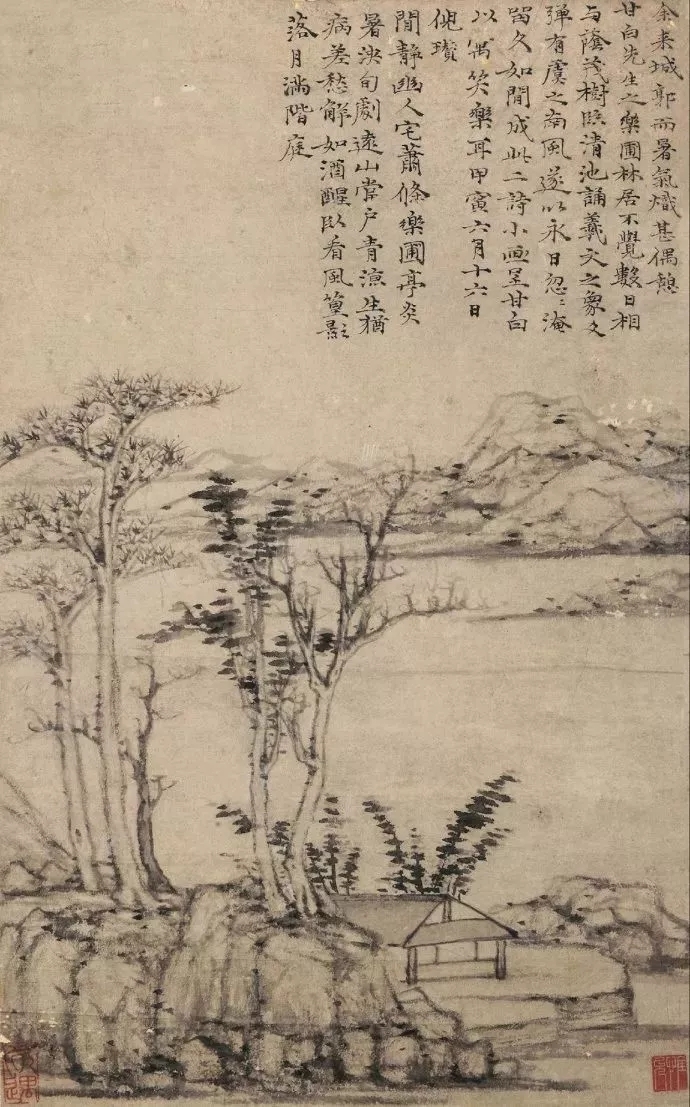 余来城郭而暑氣熾甚偶憩
甘白先生之樂圃林居不覺數日相
与蔭茂樹臨清池誦羲文之象爻
弹有虞之南風遂以永日忽〻淹
留久如閒成此二詩小畫呈甘白
以寓笑樂耳甲寅六月十六日
倪瓚
閒静幽人宅蕭條樂圃亭炎
暑浹旬劇遠山當户青涼生猶
病差愁解如酒醒臥看風篁影
落月滿階庭